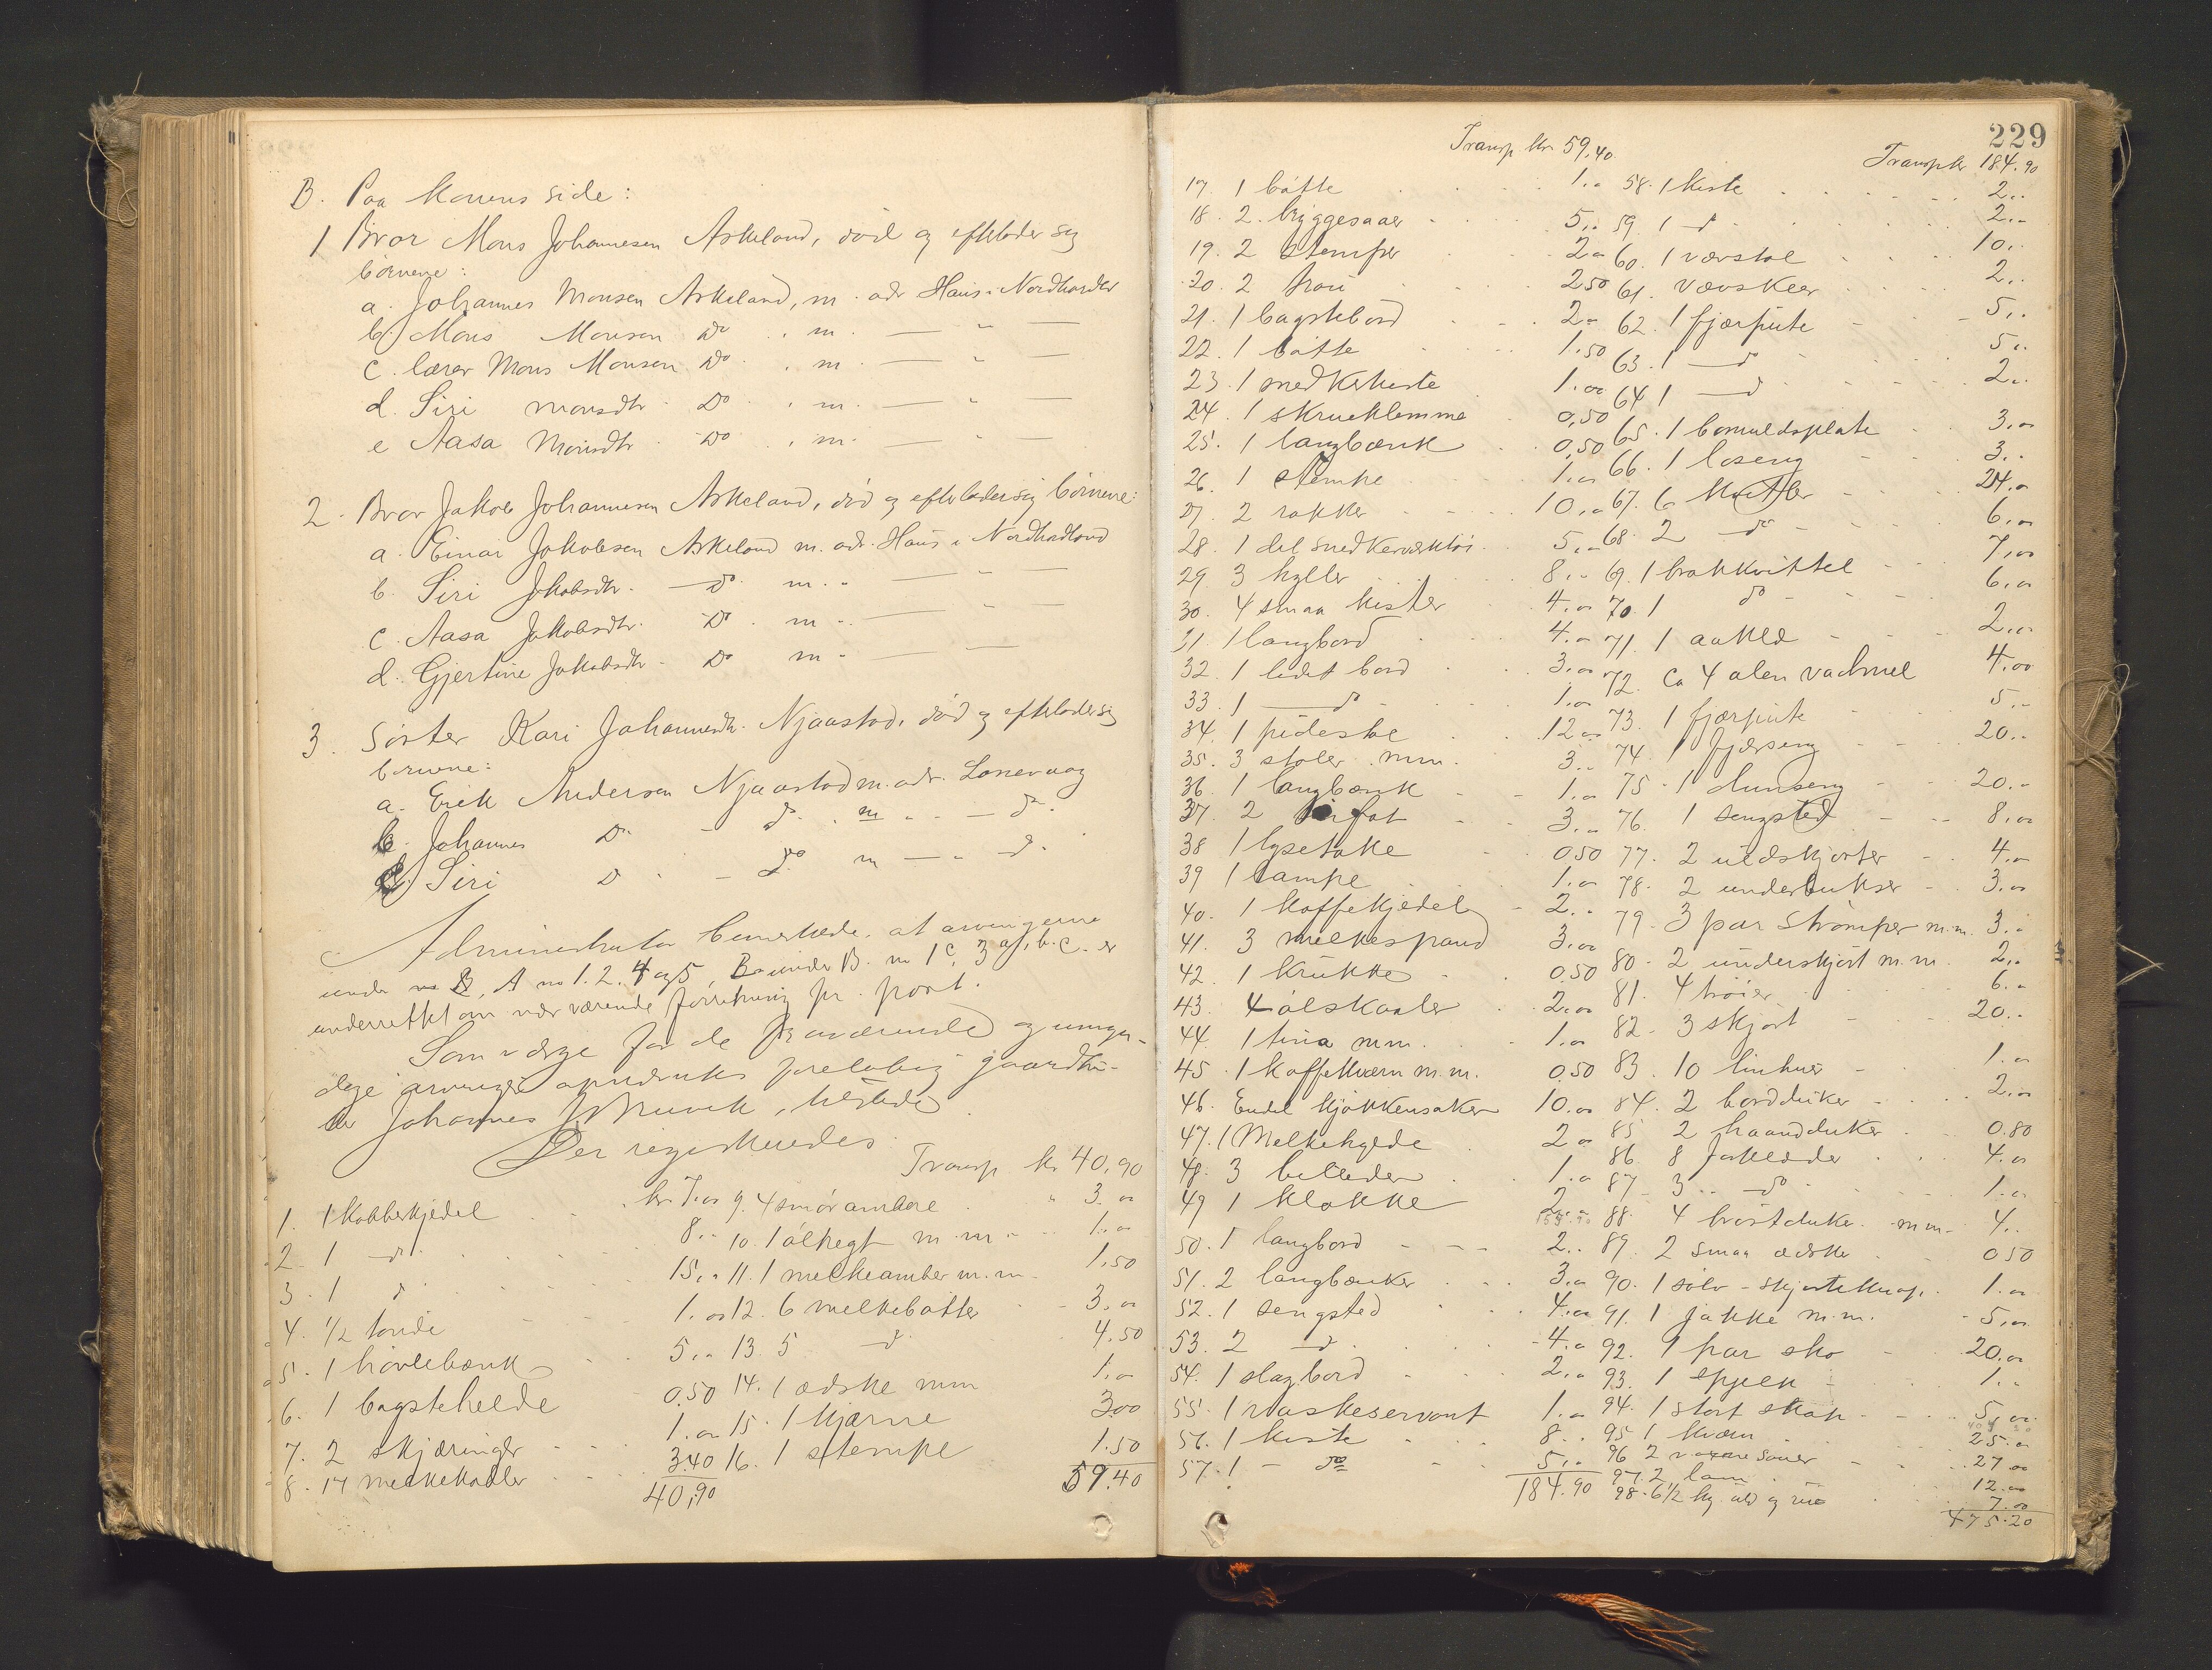 B. Paa konens side:
1 Bror Mons Johannesen Askeland, død og efterlader sig
børnene:
a. Johannes Monsen Askeland, m. adr Haus i Nordhordl
b. Mons Monsen do . m. — " —
c. lærer Mons Monsen do . m. — " —
d. Siri Monsdtr. do . m. — " —
e Aasa Monsdtr. do . m. — " —
2. Bror Jakob Johannesen Askeland, død og efterlader sig børnene:
a. Einar Jakobsen Askeland m. adr. Haus i Nordhordland
b. Siri Jakobsdtr. — do. m. " — " —
c. Aasa Jakobsdtr. do . m -. — " —
d. Gjertine Jakobsdtr. do m - — —
3. Søster Kari Johannesdtr. Njaastad, død og efterlader sig
børnene:
a. Erik Andersen Njaastad m. adr. Lonevaag
b. Johannes do - do. . m . . — do.
c. Siri do . - do m — " — do.
Administrator bemerkede, at arvingerne
under A no 1. 2. 4 og 5, under B. no 1 c, 3 a, b. c. er
underrettet om nærværende forretning pr. post.
Som værge for de fraværende og umyn-
dige arvinger opnævntes foreløbig gaardbru-
ker Johannes , tilstede.
Der registreredes:
Transp kr 40,90
1. 1 Kobberkjedel kr. 7.00 9. 4 smørambare " 3.00
2. 1 do. 8.. 10. 1 ølhegt m.m. 1.00
3. 1 do 15.. 11. 1 melkeamber m.m. 1.50
4. ½ tønde 1.00 12. 6 melkebøtter 3.00
5. 1 høvlebænk 5.. 13. 5 do 4.50
6. 1 bagstehelde 0.50 14. 1 ædske mm 1.00
7. 2 skjæringer 1.00 15. 1 kjærne 3.00
8. 17 melkekoller 3.40 16. 1 stempe 1.50
40,90 59.40
229
Transp kr 59,40. Transp kr 184.90
17. 1 bøtte 1.. 58. 1 kiste 2..
18. 2 bryggesaaer 5.. 59. 1 do 2..
19. 2 stemper 2.. 60. 1 vævstol 10..
20. 2 2.50 61. Vævskeer 2..
21. 1 bagstebord 2.. 62. 1 fjærpute 5..
22. 1 bøtte 1.50 63. 1 do 5..
23. 1 snedkerkiste 1.00 64 1 do 2..
24. 1 skrueklemme 0,50 65. 1 bomuldsplate 3.00
25. 1 langbænk 0,50 66. 1 loseng 3..
26. 1 stempe 1.00 67. 6 kvitler 24.00
27. 2 rokker 10.00 68. 2 do 6.00
28. 1 del snedkerværktøi 5.. 69. 1 brokkvittel 7.00
29. 3 hyller 8.. 70. 1 do 6.00
30. 4 smaa kister 4.00 71. 1 aaklæ 2.00
31. 1 langbord 4.00 72. Ca 4 alen vadmel 4.00
32. 1 lidet bord 3.00 73. 1 fjærpute 5..
33. 1 do 1.00 74. 1 fjærseng 20..
34. 1 pidestal 12.00 75. 1 dunseng 20..
35. 3 stoler mm. 3.. 76. 1 sengsted 8.00
36. 1 langbænk 1.00 77. 2 uldskjorter 4.00
37. 2 fat 3.. 78. 2 underbukser 3.00
38 1 lysetake 0.50 79. 3 par strømper m.m. 3..
39 1 lampe 1.00 80. 2 underskjørt m.m. 2..
40. 1 kaffekjedel 2.. 81. 4 trøier 6..
41. 3 melkespand 3.00 82. 3 skjørt 20..
42. 1 krukke 0.50 83. 10 linhuer 1.00
43. 4 ølskaaler 2.00 84. 2 bordduker 2.00
44. 1 tina mm. 1.00 85 2 haandduker 0.80
45. 1 kaffekværn m.m. 0.50 86. 8 forklæder 4.00
46. Endel kjøkkensaker 10.00 87 3 do 1.00
47. 1 Melkehylde 2.00 88. 4 brøstduker mm. 4..
48. 3 billeder 1.00 89. 2 smaa ædsker 0.50
49 1 klokke 2.. 90. 1 sølv-skjorteknap. 1.00
50. 1 langbord 2.. 91. 1 jakke m.m. 5.00
51. 2 langbænker 3.00 92. 1 par sko 20.00
52. 1 sengsted 4.00 93. 1 1..
53. 2 do 4.00 94. 1 stort skap 5.00
54. 1 slagbord 2.. 95 1 kværn 25.00
55. 1 vaskeservant 1.00 96 2 voxne sauer 27.00
56. 1 kiste 8.. 97. 2 lam 12.00
57. 1 - do 5.. 98. 6½ kg. uld 7.00
184.90 475.20